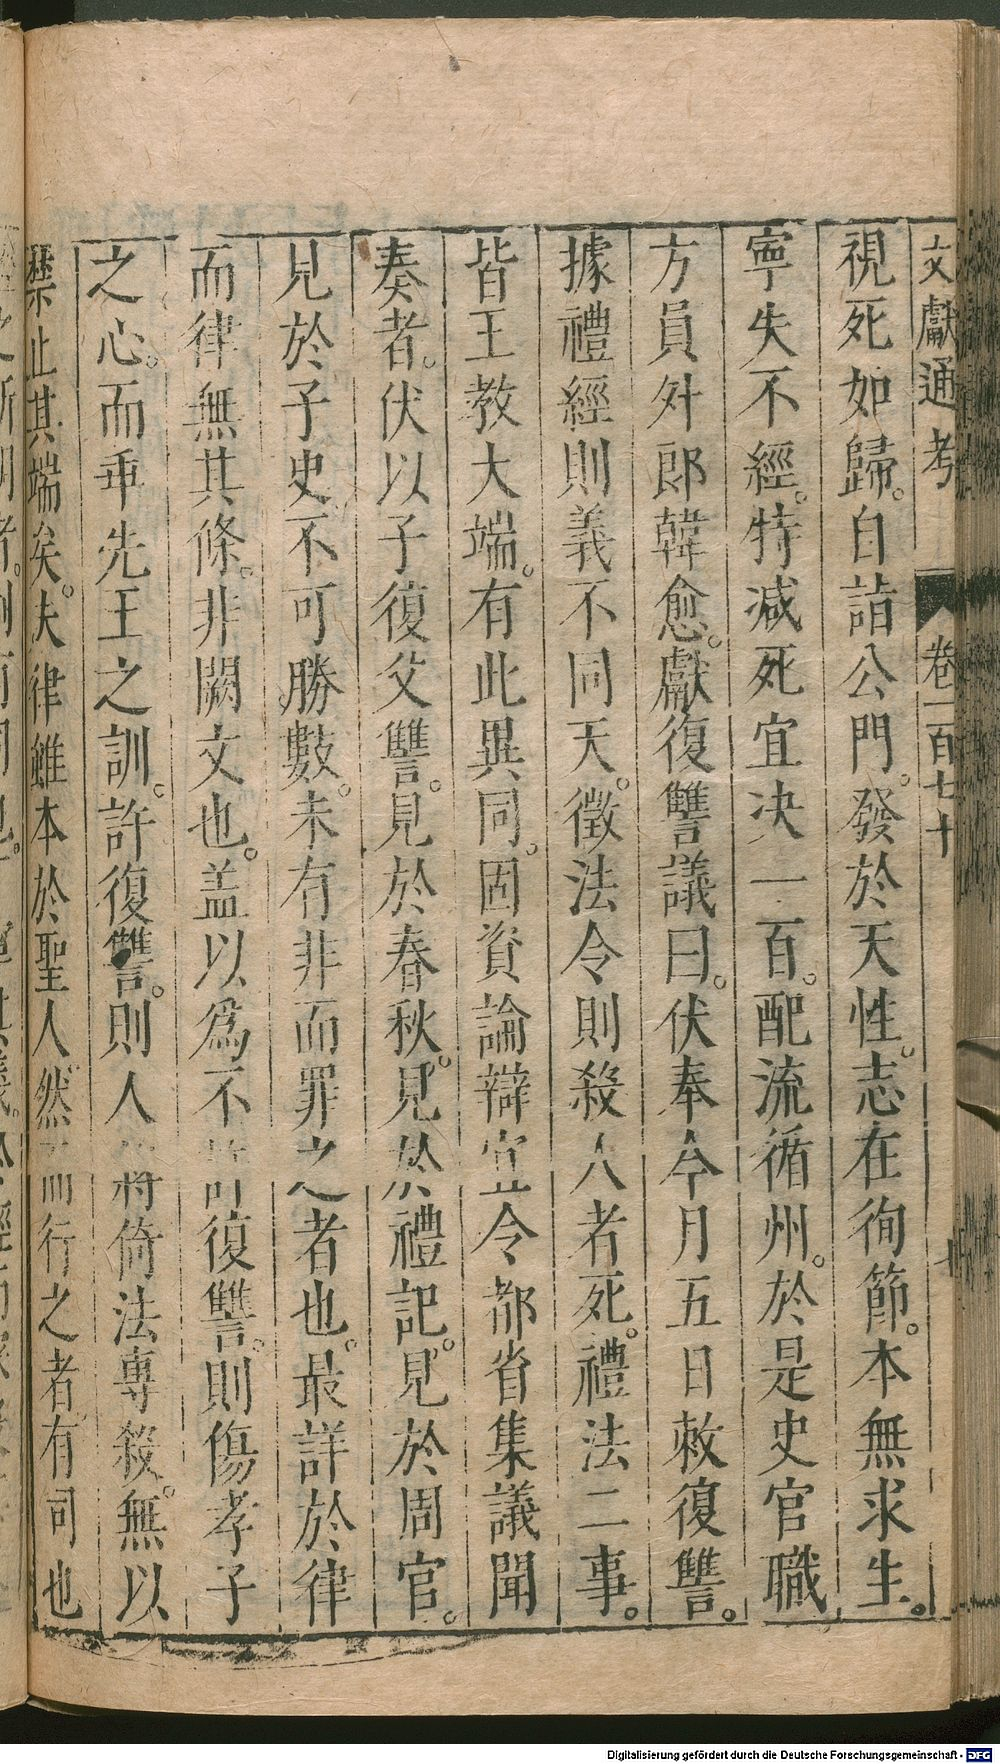 文獻通考 卷一百七十 七
視死如歸。自詣公門。發於天性。志在徇節。本無求生。
寧失不經。特减死宜决一百。配流循州。於是史官職
方員外郎韓愈。獻復讐議曰。伏奉今月五日敕復讐。
據禮經則義不同天。徵法令則殺人者死。禮法二事。
皆王教大端。有此異同。固資論辯。宜令都省集議聞
奏者。伏以子復父讐。見於春秋。見於禮記。見於周官。
見於子史。不可勝數。未有非而罪之者也。最詳於律
而律無其條。非闕文也。盖以爲不許復讐。則傷孝子
之心。而乖先王之訓。許復讐。則人將倚法專殺。無以
禁止其端矣。夫律雖本於聖人。然而行之者有司也
Digitalisierung gefördert durch die Deutsche Forschungsgemeinschaft - DFG